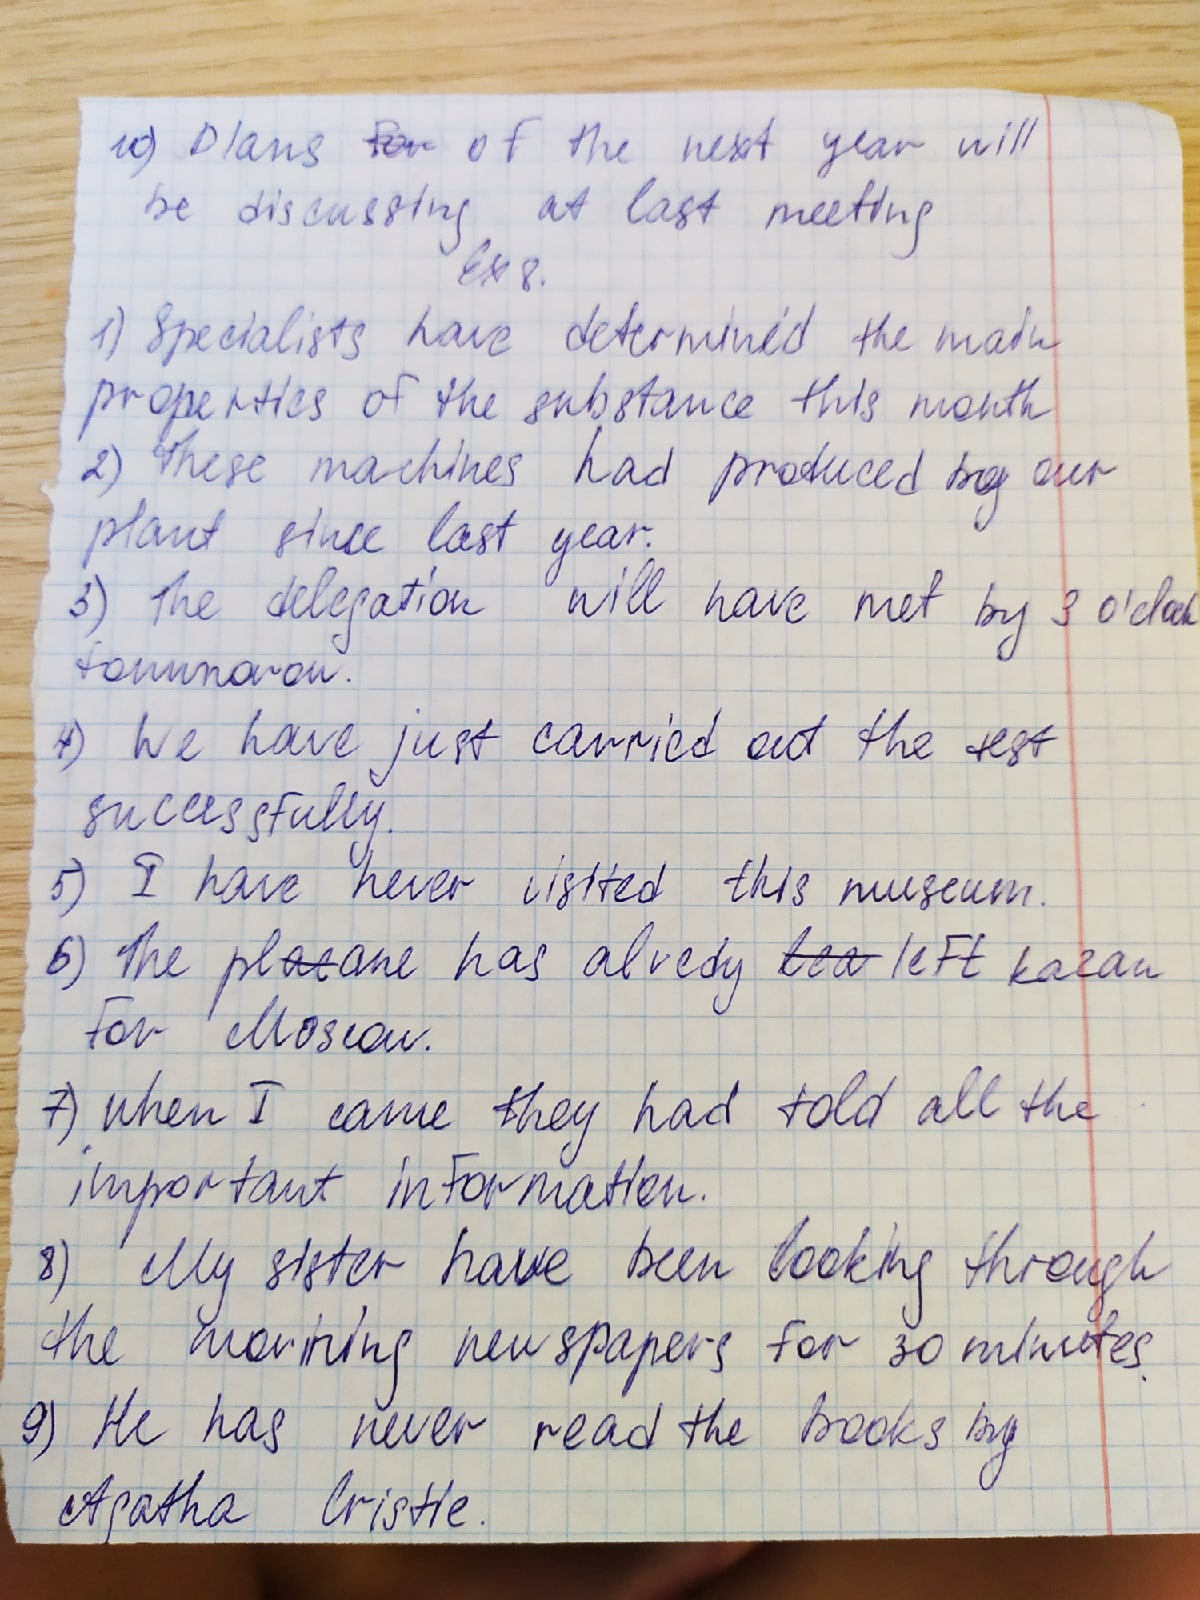 10) Plans for of the next year will
be discussing at last meeting
Ex 8.
1) Specialists have determined the main
properties of the substance this month
2) These machines had produced by our
plant since last year.
3) The delegation will have met by 3 o'clock
tommorow.
4) We have just carried out the test
successfully.
5) I have never visited this museum.
6) The plane has alredy lea left Kazan
for Moscow.
7) When I came they had told all the
important information.
8) My sister have been looking through
the morining newspapers for 30 minutes.
9) He has never read the books by
Agatha Cristie.